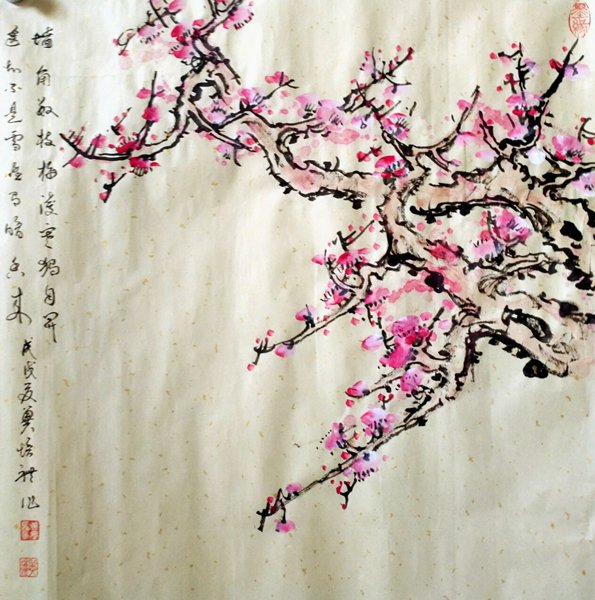 墙角数枝梅凌寒独自开
遥知不是雪为有暗香来
戊戌夏 作